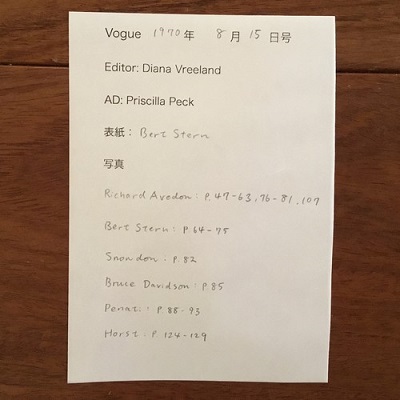 Vogue 1970年 8月 15日号
Editor: Diana Vreeland
AD: Priscilla Peck
表紙： Bert Stern
写真
Richard Avedon : P.47-63, 76-81, 107
Bert Stern : P.64-75
Snowdon . P.82
Bruce Davidson : P.85
Penati : P.88-93
Horst . P.124-129